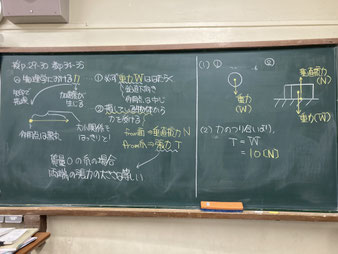 教p.29~30 参p.34~35
◎物理学における力
矢印で
表現
加速度が
生じる
作用点は黒丸
大小関係を
はっきりと!
① 必ず重力Wははたらく
鉛直下向き
作用点は中心
② 接している物体から
力を受ける!
from面 ⇒ 垂直抗力 N
from糸 ⇒ 張力 T
質量0の糸の場合
両端の張力の大きさは等しい
(1) ①
重力
(W)
②
垂直抗力
(N)
重力(W)
(2) 力のつり合いより、
T = W
= 10 [N]